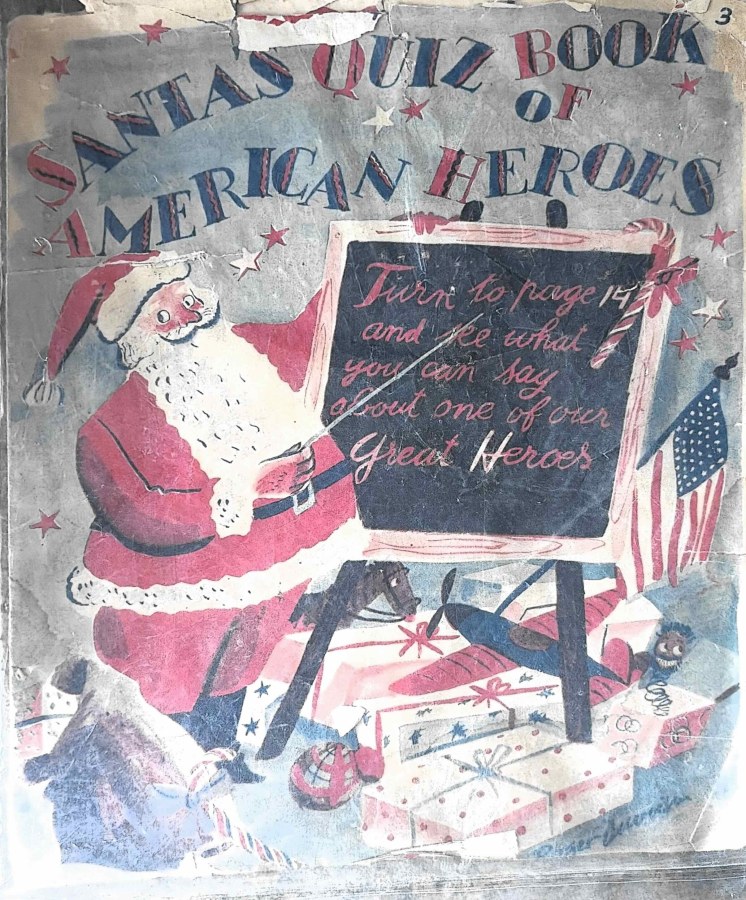 3
SANTA'S QUIZ BOOK
OF
AMERICAN HEROES
Turn to page 14
and see what
you can say
about one of our
Great Heroes
Roger Duvoisin